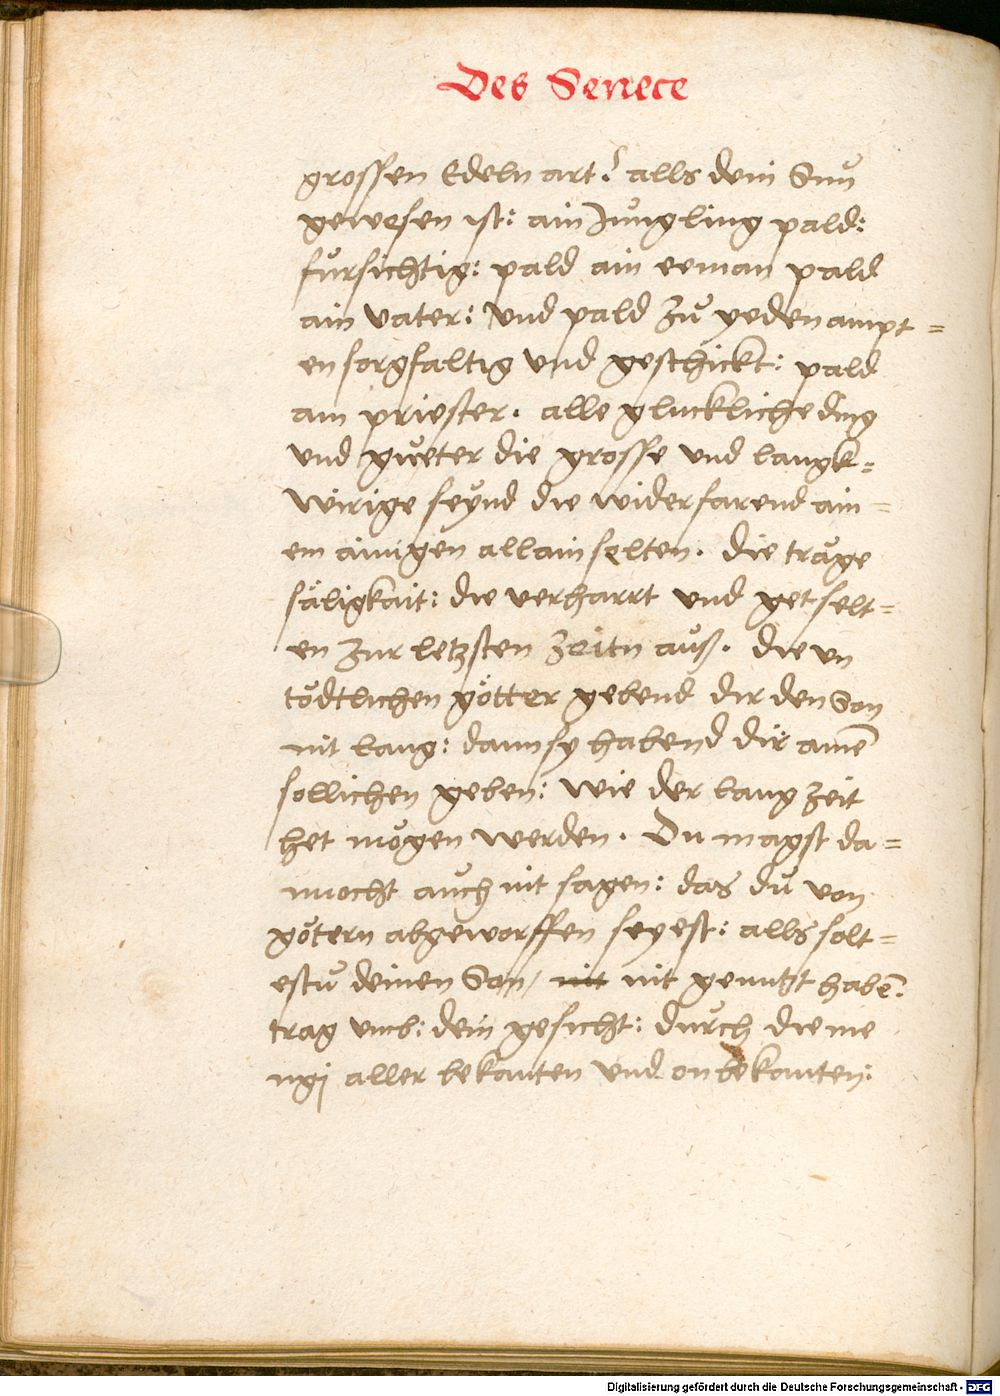 Des Senece
grossen Edeln art? alls dein Sun
gewesen ist: ain Jungling pald:
fůrsichtig: pald ain eeman pald
ain vater: Vnd pald zů yeden ampt=
en sorgfaltig vnd geschickt: pald
ain priester. alle gluckliche ding
vnd gůeter die grosse vnd langk=
wirige seynd die widerfarend ain=
em ainigen allain selten. die tråge
säligkait: die verharrt vnd get selt=
en zur letzsten zeitn auß. die vn
tödtlichen götter gebend dir den Son
nit lang: dann sy habend dir ainē
sollichen geben: wie der lang zeit
het mögen werden. Du magst da=
nnocht auch nit sagen: das du von
götern abgeworffen seyest: alls solt=
estu deinen Son, nit nit genutzt habē:
trag vmb: dein gesicht: durch die me
ngj aller bekanten vnd onbekanten:
Digitalisierung gefördert durch die Deutsche Forschungsgemeinschaft - DFG